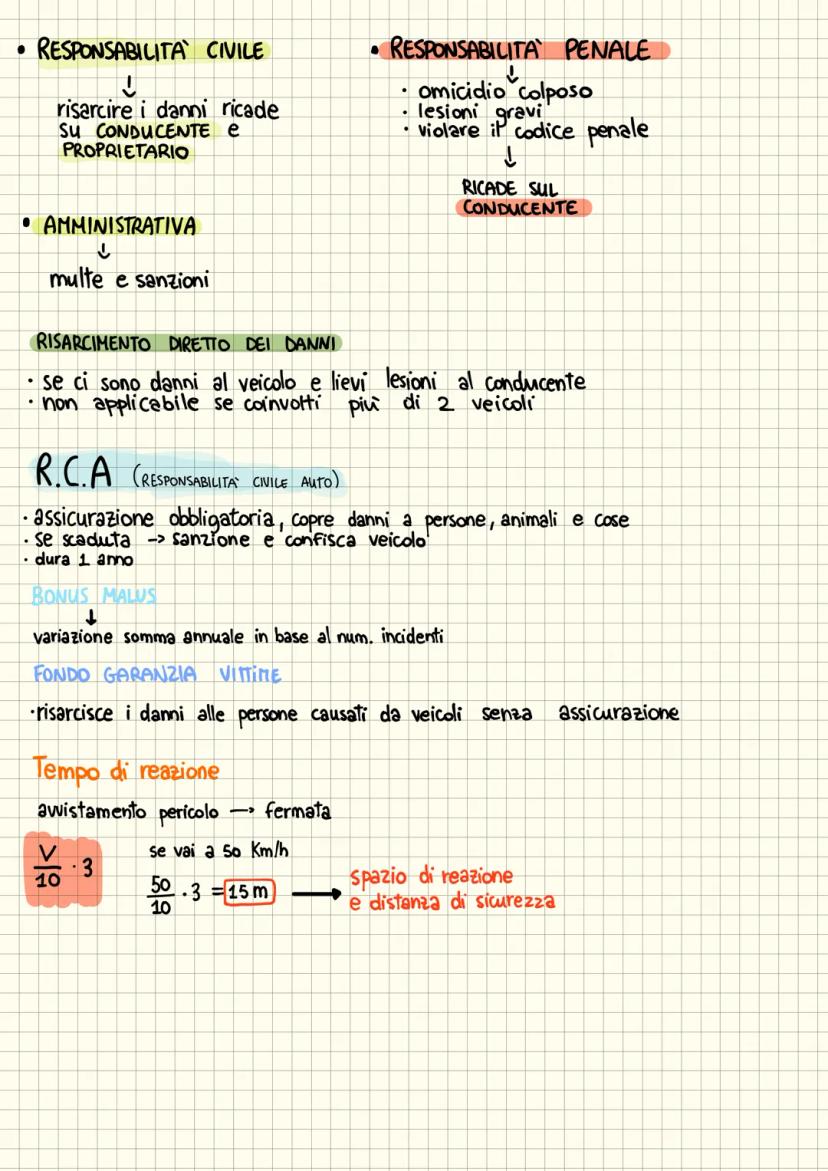 • RESPONSABILITA' CIVILE
↓
risarcire i danni ricade
su CONDUCENTE e
PROPRIETARIO
• RESPONSABILITA' PENALE
↓
· omicidio colposo
· lesioni gravi
· violare il codice penale
↓
RICADE SUL
CONDUCENTE
• AMMINISTRATIVA
↓
multe e sanzioni
RISARCIMENTO DIRETTO DEI DANNI
· se ci sono danni al veicolo e lievi lesioni al conducente
· non applicabile se coinvolti più di 2 veicoli
R.C.A (RESPONSABILITA' CIVILE AUTO)
· assicurazione obbligatoria, copre danni a persone, animali e cose
· se scaduta -> sanzione e confisca veicolo
· dura 1 anno
BONUS MALUS
↓
variazione somma annuale in base al num. incidenti
FONDO GARANZIA VITTIME
· risarcisce i danni alle persone causati da veicoli senza assicurazione
Tempo di reazione
avvistamento pericolo → fermata
V/10 · 3
se vai a 50 Km/h
50/10 · 3 = 15 m → spazio di reazione
e distanza di sicurezza